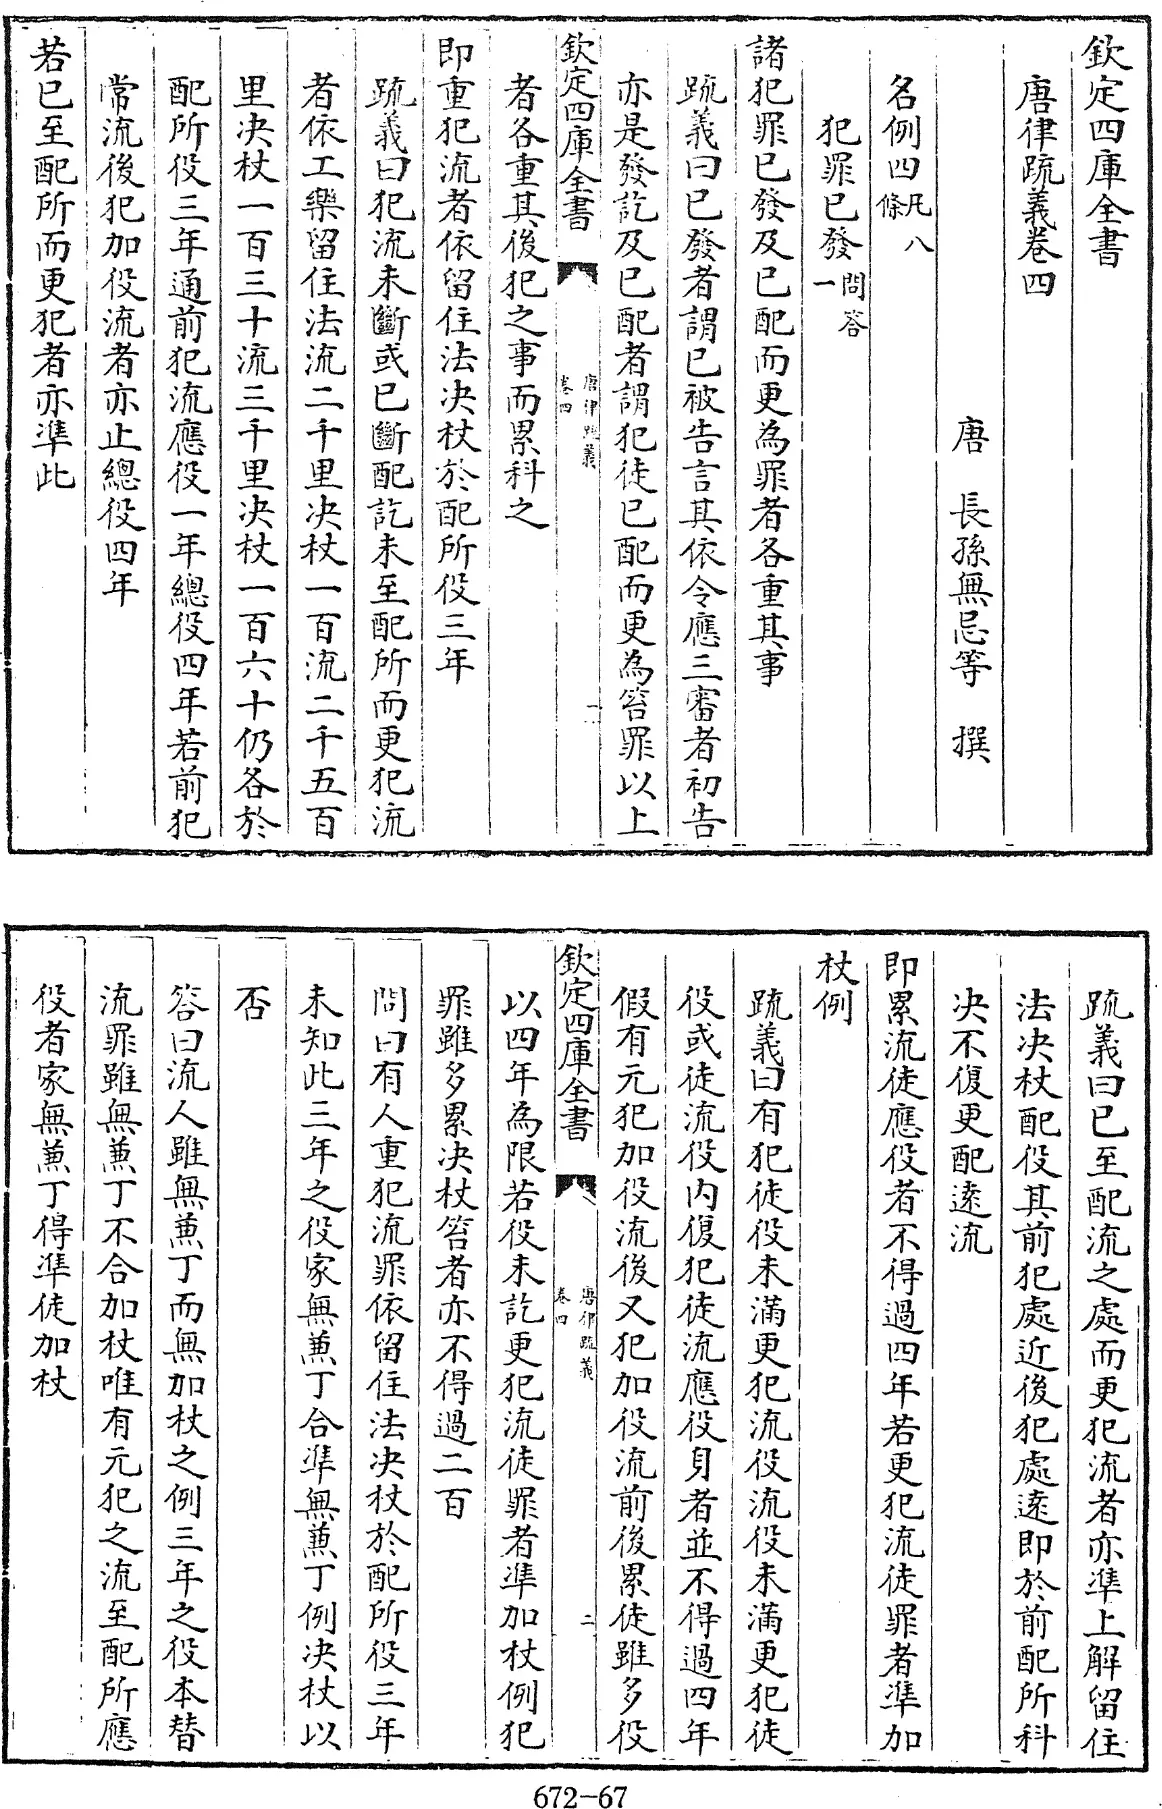 欽定四庫全書
唐律疏義卷四
唐　長孫無忌等　撰
名例四凡八條
犯罪已發問答一
諸犯罪已發及已配而更為罪者各重其事
疏義曰已發者謂已被告言其依令應三審者初告
亦是發訖及已配者謂犯徒已配而更為笞罪以上
欽定四庫全書　唐律疏義卷四　一
者各重其後犯之事而累科之
即重犯流者依留住法决杖於配所役三年
疏義曰犯流未斷或已斷配訖未至配所而更犯流
者依工樂留住法流二千里决杖一百流二千五百
里决杖一百三十流三千里决杖一百六十仍各於
配所役三年通前犯流應役一年總役四年若前犯
常流後犯加役流者亦止總役四年
若已至配所而更犯者亦準此
疏義曰已至配流之處而更犯流者亦準上解留住
法决杖配役其前犯處近後犯處逺即於前配所科
决不復更配逺流
即累流徒應役者不得過四年若更犯流徒罪者準加
杖例
疏義曰有犯徒役未滿更犯流役流役未滿更犯徒
役或徒流役内復犯徒流應役身者並不得過四年
假有元犯加役流後又犯加役流前後累徒雖多役
欽定四庫全書　唐律疏義卷四　二
以四年為限若役未訖更犯流徒罪者準加杖例犯
罪雖多累决杖笞者亦不得過二百
問曰有人重犯流罪依留住法决杖於配所役三年
未知此三年之役家無兼丁合準無兼丁例决杖以
否
答曰流人雖無兼丁而無加杖之例三年之役本替
流罪雖無兼丁不合加杖唯有元犯之流至配所應
役者家無兼丁得準徒加杖
672-67